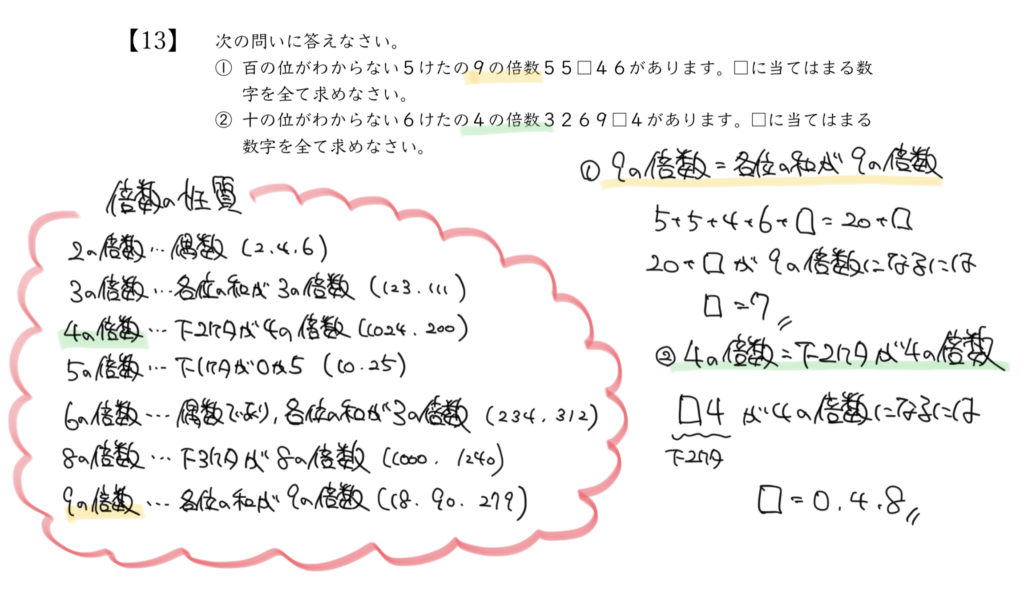 【13】 次の問いに答えなさい。
① 百の位がわからない5けたの9の倍数55□46があります。□に当てはまる数
字を全て求めなさい。
② 十の位がわからない6けたの4の倍数3269□4があります。□に当てはまる
数字を全て求めなさい。
倍数の性質
2の倍数…偶数(2.4.6)
3の倍数…各位の和が3の倍数(123.111)
4の倍数…下2ケタが4の倍数(1024.200)
5の倍数…下1ケタが0か5(10.25)
6の倍数…偶数であり,各位の和が3の倍数(234.312)
8の倍数…下3ケタが8の倍数(1000.1240)
9の倍数…各位の和が9の倍数(18.90.279)
① 9の倍数=各位の和が9の倍数
5+5+4+6+□=20+□
20+□が9の倍数になるには
□=7
② 4の倍数=下2ケタが4の倍数
□4が4の倍数になるには
下2ケタ
□=0.4.8